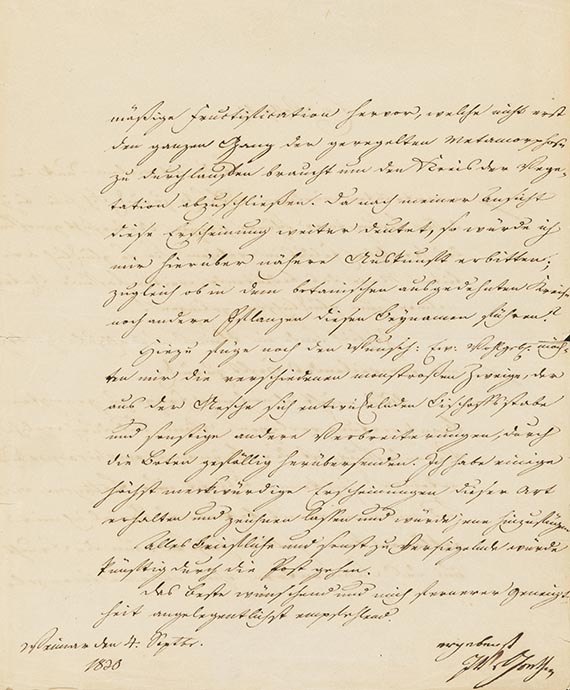 mäßige Fructification hervor, welche nicht erst
den ganzen Gang der geregelten Metamorphose
zu durchlaufen braucht um den Kreis der Vege-
tation abzuschließen. Da nach meiner Ansicht
diese Erscheinung weiter deutet, so würde ich
mir hierüber nähere Auskunft erbitten;
zugleich ob in dem botanischen ausgedehnten Kreise
noch andere Pflanzen diesen Beynamen führen?
Hiezu füge noch den Wunsch: Ew. Wohlgeb. möch-
ten mir die verschiedenen monstrosen Zweige, der
aus der Aesche sich entwickelnden Bischoffsstabe
und sonstige andere Verbreiterungen, durch
die Boten gefällig herübersenden. Ich habe einige
höchst merkwürdige Erscheinungen dieser Art
erhalten und zeichnen lassen und würde jene hinzufügen.
Alles Briefliche und sonst zu Versiegelnde würde
künftig durch die Post gehen.
Das Beste wünschend und mich fernerer Geneigt-
heit angelegentlichst empfehlend
Weimar den 4. Septbr.
1820
ergebenst
JWvGoethe